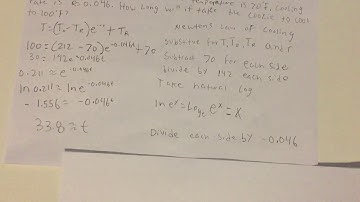 temperature is 70°F, cooling
rate is 0.046. How long will it take the cookie to cool
to 100°F?
T=(T₀-T_R)e^-rt + T_R
Newtons Law of cooling
100=(212-70)e^-0.046t+70
Substitute for T, T₀, T_R and
30=142e^-0.046t
Subtract 70 for each side
divide by 142 each side
0.211=e^-0.046t
Take natural log
ln 0.211=ln e^-0.046t
ln e^x=log_e e^x=x
-1.556=-0.046t
Divide each side by -0.046
33.8≈t